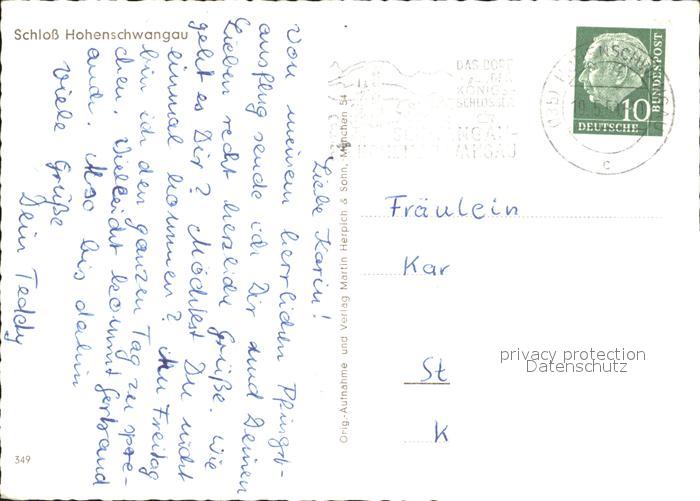 Schloß Hohenschwangau
Liebe Karin!
Von meinem herrlichen Pfingst-
ausflug sende ich Dir und Deinen
Lieben recht herzliche Grüße. Wie
geht es Dir? Möchtest Du nicht
einmal kommen? Am Freitag
bin ich den ganzen Tag zu spre-
chen. Vielleicht kommt Gertraud
auch. Also bis dahin
viele Grüße
Dein Teddy
349
Orig.-Aufnahme und Verlag Martin Herpich & Sohn, München 54
DAS DORF
DER
KÖNIGS-
SCHLÖSSER
10
DEUTSCHE
BUNDESPOST
c
Fräulein
Kar
St
K
privacy protection
Datenschutz